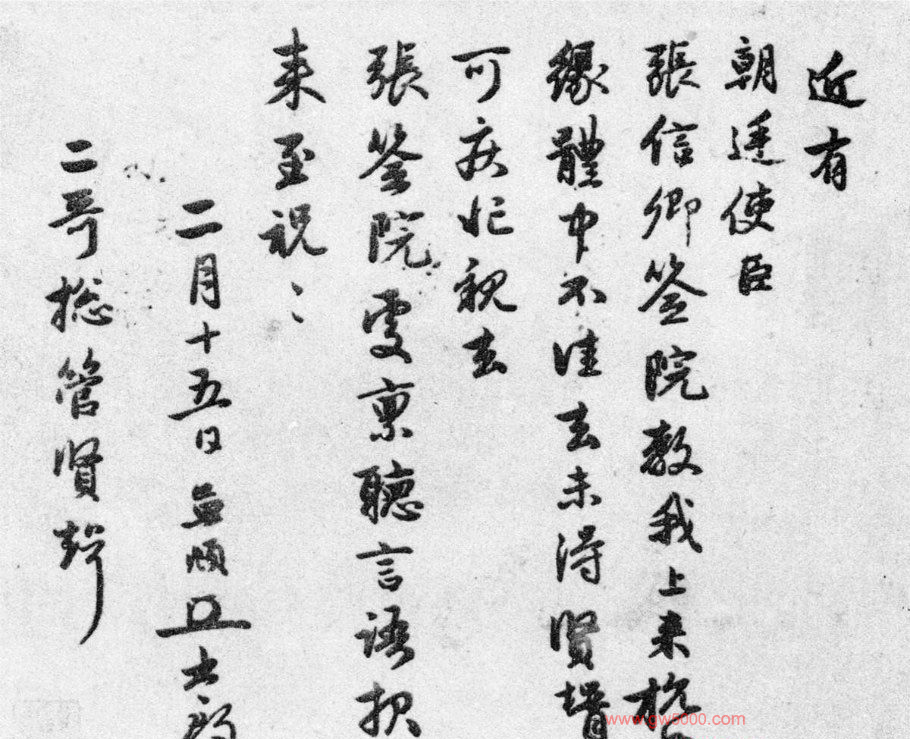 近有
朝廷使臣
張信卿簽院教我上來杭
緣體中不佳去未得賢壻
可疾忙親去
張簽院處稟聽言語
來至祝〻
二月十五日孟頫
二哥總管賢壻
www.gw5000.com